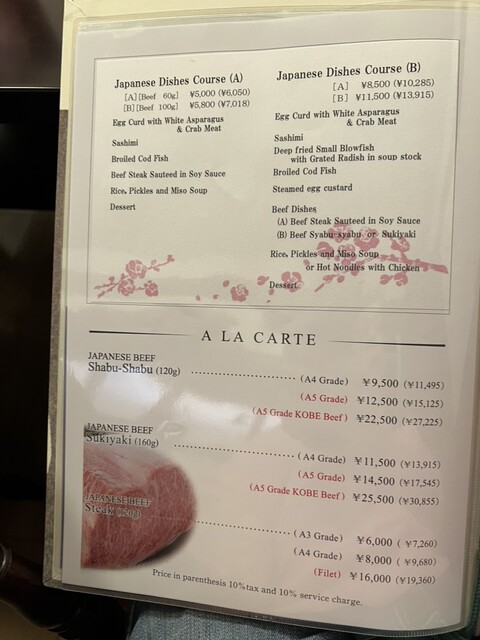 Japanese Dishes Course (A)
[A][Beef 60g] ¥5,000 (¥6,050)
[B][Beef 100g] ¥5,800 (¥7,018)
Egg Curd with White Asparagus
& Crab Meat
Sashimi
Broiled Cod Fish
Beef Steak Sauteed in Soy Sauce
Rice, Pickles and Miso Soup
Dessert
Japanese Dishes Course (B)
[A] ¥8,500 (¥10,285)
[B] ¥11,500 (¥13,915)
Egg Curd with White Asparagus
& Crab Meat
Sashimi
Deep fried Small Blowfish
with Grated Radish in soup stock
Broiled Cod Fish
Steamed egg custard
Beef Dishes
(A) Beef Steak Sauteed in Soy Sauce
(B) Beef Syabu-syabu or Sukiyaki
Rice, Pickles and Miso Soup
or Hot Noodles with Chicken
Dessert
A LA CARTE
JAPANESE BEEF
Shabu-Shabu (120g) (A4 Grade) ¥9,500 (¥11,495)
(A5 Grade) ¥12,500 (¥15,125)
(A5 Grade KOBE Beef) ¥22,500 (¥27,225)
JAPANESE BEEF
Sukiyaki (160g) (A4 Grade) ¥11,500 (¥13,915)
(A5 Grade) ¥14,500 (¥17,545)
(A5 Grade KOBE Beef) ¥25,500 (¥30,855)
JAPANESE BEEF
Steak (120g) (A3 Grade) ¥6,000 (¥7,260)
(A4 Grade) ¥8,000 (¥9,680)
(Filet) ¥16,000 (¥19,360)
Price in parenthesis 10%tax and 10% service charge.